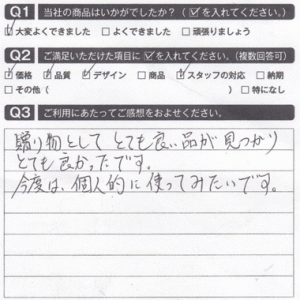 Q1 当社の商品はいかがでしたか？（☑を入れてください。）
☑大変よくできました □よくできました □頑張りましょう
Q2 ご満足いただけた項目に☑を入れてください。（複数回答可）
☑価格 ☑品質 ☑デザイン □商品 ☑スタッフの対応 □納期
□その他（ ） □特になし
Q3 ご利用にあたってご感想をおよせください。
贈り物として とても良い品が見つかり
とても良かったです。
今度は、個人的に使ってみたいです。